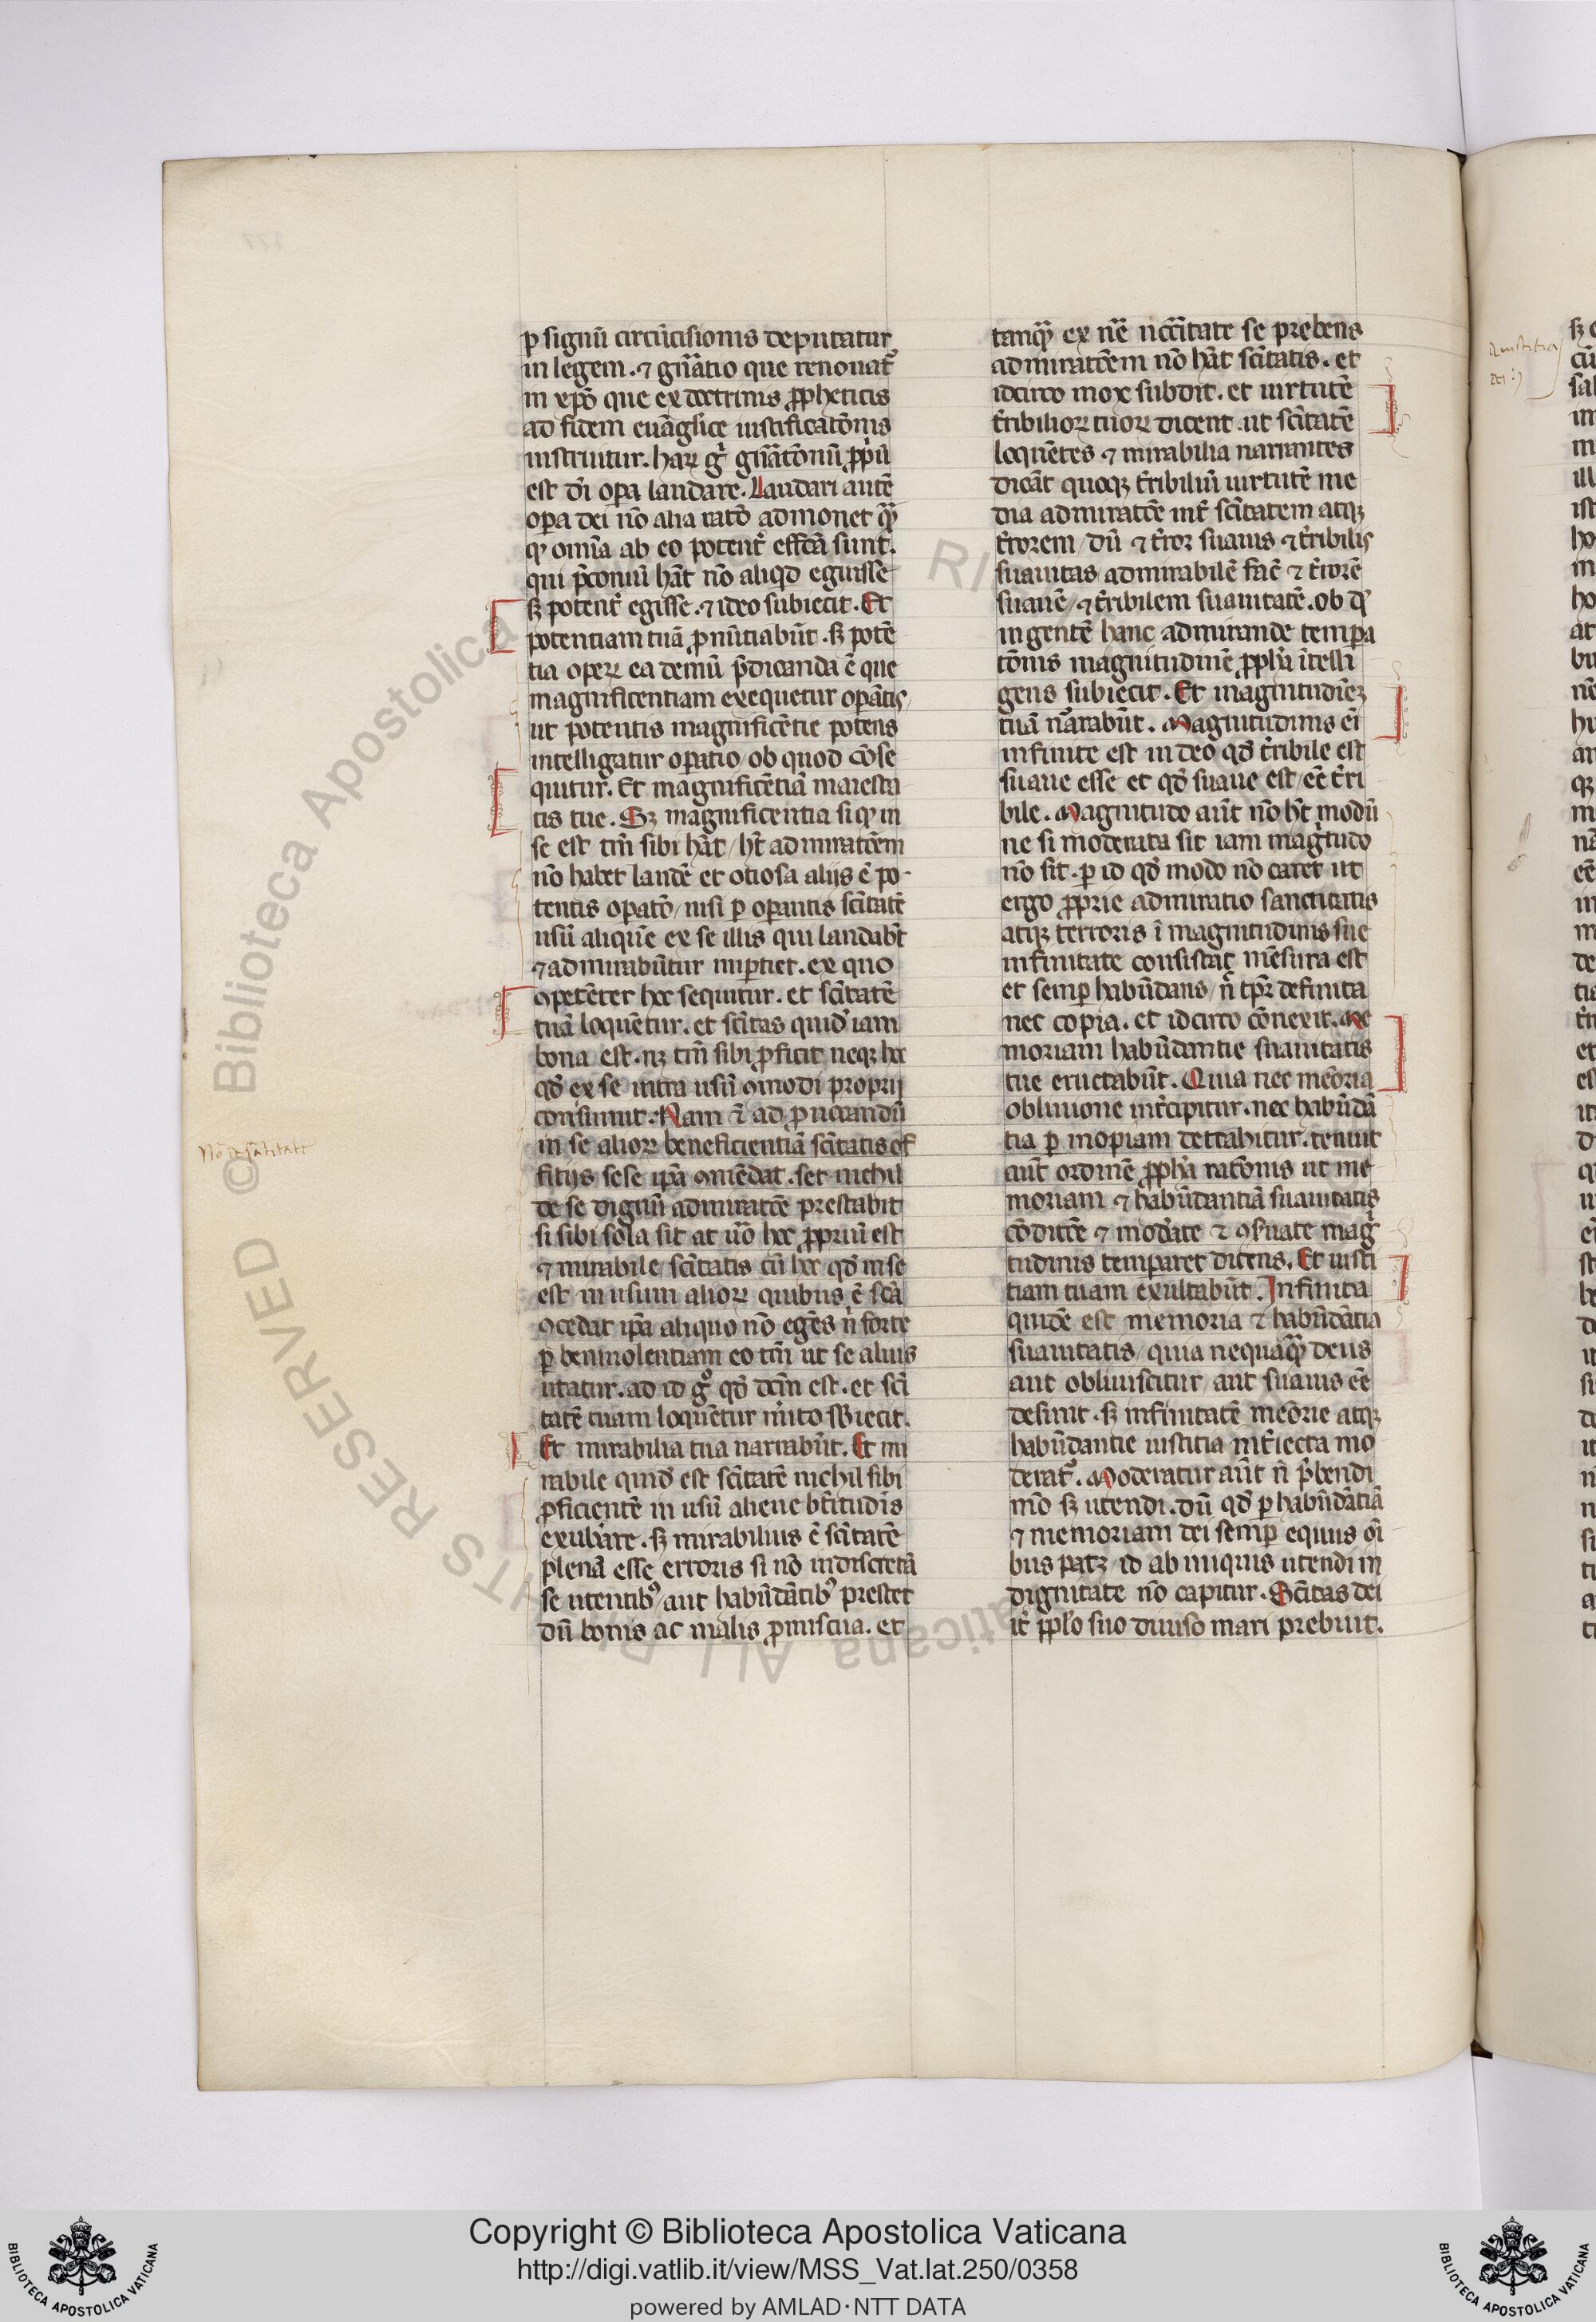 ꝑ signū circūcisionis deputatur
in legem. ⁊ gn̄atio que renouat᷑
in xp̄o que ex doctrinis ꝓpheticis
ad fidem euāglice iustificatōnis
instruitur. haꝝ gͥ gn̄atōnū ꝓpͥū
est dī oꝑa laudare. Laudari autē
oꝑa dei nō alia ratō admonet qͣꝫ
ꝙ om̄ia ab eo potent᷑ effcā sunt.
qui p̄coniū hn̄t nō aliqͥd eguisse
sꝫ potent᷑ egisse. ⁊ ideo subiecit. Et
potentiam tuā ꝓnūtiabūt. sꝫ potē
tia oꝑeꝝ ea demū p̄dicanda ē que
magnificentiam exequetur oꝑātis,
ut potentis magnificētie potens
intelligatur oꝑatio/ ob quod cōse
quitur. Et magnificētiā maiesta
tis tue. Sꝫ magnificentia si ꝙ in
se est tm̄ sibi hāt/ hꝫ admiratōem
nō habet laudē et otiosa alijs ē po-
tentis oꝑatō/ nisi ꝑ oꝑantis scītatē
usū aliquē ex se illis qui laudabūt
⁊ admirabūtur imꝑtiet. ex quo
ꝯpetēter hec sequitur. et scītatē
tuā loquētur. et scītas quidͣ iam
bona est. nꝫ tm̄ sibi ꝓficit neqꝫ hec
qd̄ ex se intra usū ꝯmodi proprij
consumit. Nam ⁊ ad ꝓuocandū
in se alioꝝ beneficientiā scītatis of
fitijs sese ip̄a ꝯmēdat. set nichil
de se dignū admiratōe prestabit
si sibi sola sit at uͦo hec ꝓpriū est
⁊ mirabile/ scītatis cū hec qd̄ in se
est in usum alioꝝ quibus ē scā
ꝯcedat ip̄a aliquo nō egēs n̄ forte
ꝑ beniuolentiam eo tm̄ ut se alius
utatur. ad id gͦ qd̄ dcm̄ est. et scī
tatē tuam loquētur mͥto sb̄iecit.
Et mirabilia tua narrabūt. Et mi
rabile quid̄ est scītatē nichil sibi
ꝓficientē in usū aliene bt̄itudīs
exubāre. sꝫ mirabilius ē scītatē
plenā esse erroris si nō indiscretā
se utentibꝰ/ aut habūdātibꝰ prestet
dū bonis ac malis ꝓmiscua. et
tanqͣꝫ ex nr̄e ncc̄itate se prebens
admiratōem nō hāt scītatis. et
idcirco mox subdit. et uirtutē
t̄ribilioꝝ tuoꝝ dicent. ut scītatē
loquētes ⁊ mirabilia narrantes
dicāt quoqꝫ t̄ribiliū uirtutē me
dia admiratōe int᷑ scītatem atqꝫ
t̄rorem/ dū ⁊ t̄ror suauis ⁊ t̄ribilis
suauitas admirabilē facͭ ⁊ t̄rorē
suauē/ ⁊ t̄ribilem suauitatē. ob qͩ
ingentē hanc admirande temꝑa
tōnis magnitudinē ꝓphͣ ītelli
gens subiecit. Et magnitudīeꝫ
tuā nͣrabūt. Magnitudinis eī
infinite est in deo qd̄ t̄ribile est
suaue esse et qd̄ suaue est/ eē t̄ri
bile. Magnitudo aūt nō hꝫ modū
ne si moderata sit iam magͥtudo
nō sit. ꝑ id qd̄ modo nō caret ut
ergo ꝓprie admiratio sanctitatis
atqꝫ terroris ī magnitudinis sue
infinitate consistat᷑ mēsura est
et semꝑ habūdans/ n̄ tp̄r definita
nec copia. et idcirco cōnexit. Me
moriam habūdantie suauitatis
tue eructabūt. Quia nec mēoria
obliuione int᷑cipitur. nec habūdā
tia ꝑ inopiam dettahitur. tenuit
aūt ordinē ꝓphͣ ratōnis ut me
moriam ⁊ habūdantiā suauitatis
cōditōe ⁊ modͣate ⁊ ꝯsuate magͥ
tudinis temꝑaret dicens. Et iusti
tiam tuam exultabūt. Infinita
quidē est memoria ⁊ habūdātia
suauitatis/ quia nequāqͣꝫ deus
aut obliuiscitur/ aut suauis eē
desinit. sꝫ infinitatē mēorie atqꝫ
habūdantie iustitia int᷑iecta mo
derat᷑. Moderatur aūt n̄ p̄bendi
mō sꝫ utendi. dū qd̄ ꝑ habūdātiā
⁊ memoriam dei semꝑ equus oī
bus patꝫ/ id ab iniquis utendi in
dignitate nō capitur. Scītas dei
it᷑ ppl̄o suo diuiso mari prebuit.
Nō de sātitate
d iustitia
dei
Copyright © Biblioteca Apostolica Vaticana
http://digi.vatlib.it/view/MSS_Vat.lat.250/0358
powered by AMLAD·NTT DATA
BIBLIOTECA APOSTOLICA VATICANA
BIBLIOTECA APOSTOLICA VATICANA